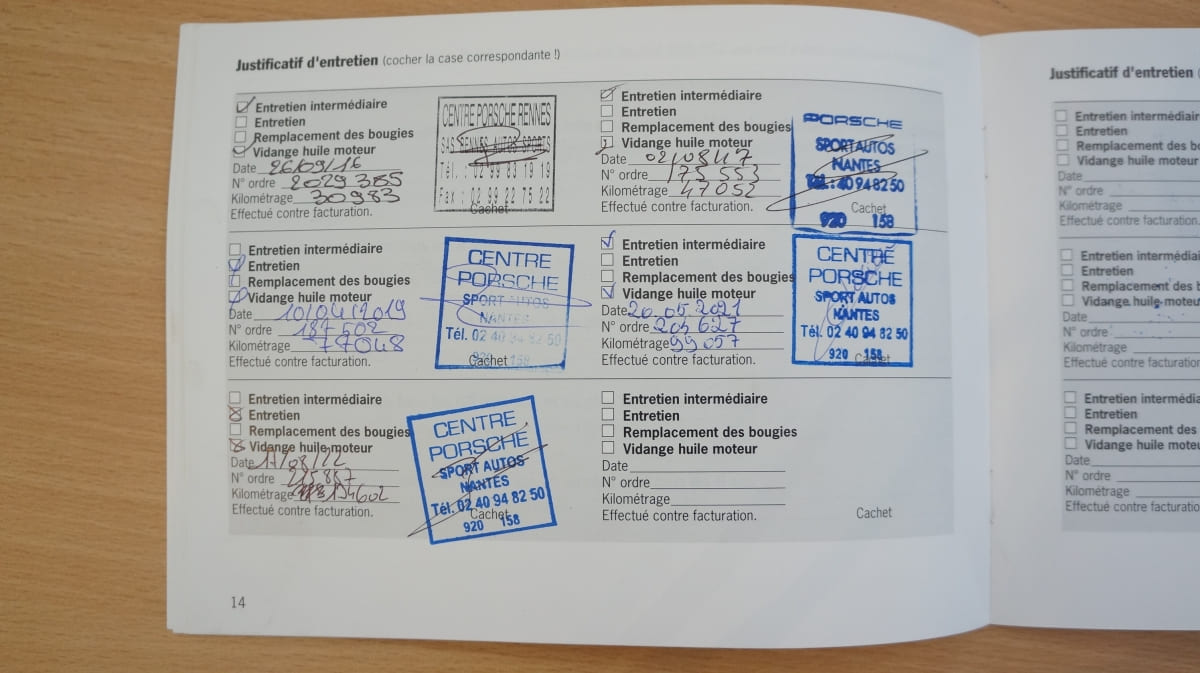 Justificatif d'entretien (cocher la case correspondante !)
Entretien intermédiaire
Entretien
Remplacement des bougies
Vidange huile moteur
Date 26/09/16
N° ordre 2029385
Kilométrage 30983
Effectué contre facturation.
CENTRE PORSCHE RENNES
SAS RENNES AUTOS SPORTS
Tél. : 02 99 83 19 19
Fax : 02 99 22 75 22
Cachet
Entretien intermédiaire
Entretien
Remplacement des bougies
Vidange huile moteur
Date 02/08/17
N° ordre 175553
Kilométrage 47052
Effectué contre facturation.
PORSCHE
SPORT AUTOS
NANTES
Tél. : 40 94 82 50
Cachet
920 158
Entretien intermédiaire
Entretien
Remplacement des bougies
Vidange huile moteur
Date 10/04/2019
N° ordre 187502
Kilométrage 77048
Effectué contre facturation.
CENTRE
PORSCHE
SPORT AUTOS
NANTES
Tél. 02 40 94 82 50
920 158
Cachet
Entretien intermédiaire
Entretien
Remplacement des bougies
Vidange huile moteur
Date 20.05.2021
N° ordre 203627
Kilométrage 99057
Effectué contre facturation.
CENTRE
PORSCHE
SPORT AUTOS
NANTES
Tél. 02 40 94 82 50
920 158
Cachet
Entretien intermédiaire
Entretien
Remplacement des bougies
Vidange huile moteur
Date 17/08/22
N° ordre 215887
Kilométrage 134602
Effectué contre facturation.
CENTRE
PORSCHE
SPORT AUTOS
NANTES
Tél. 02 40 94 82 50
Cachet
920 158
Entretien intermédiaire
Entretien
Remplacement des bougies
Vidange huile moteur
Date
N° ordre
Kilométrage
Effectué contre facturation.
Cachet
14
Justificatif d'entretien (
Entretien intermédiaire
Entretien
Remplacement des bo
Vidange huile moteur
Date
N° ordre
Kilométrage
Effectué contre facturation.
Entretien intermédiai
Entretien
Remplacement des b
Vidange huile moteu
Date
N° ordre
Kilométrage
Effectué contre facturation
Entretien intermédia
Entretien
Remplacement des
Vidange huile moteu
Date
N° ordre
Kilométrage
Effectué contre facturatio